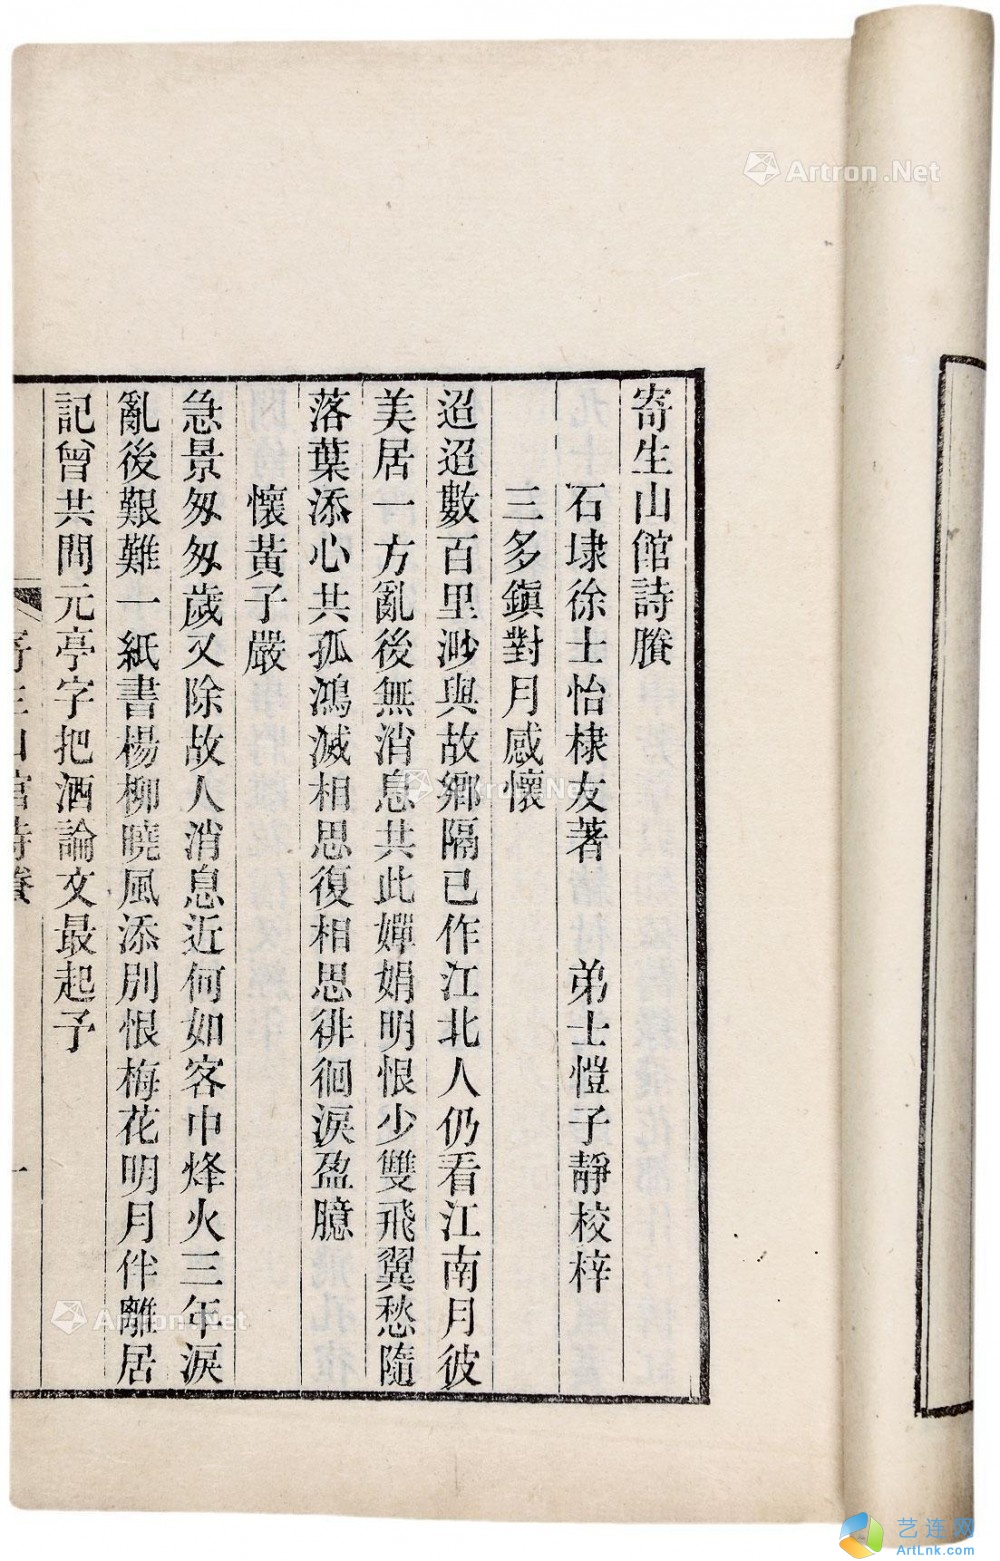 寄生山館詩賸
石埭徐士怡棣友著　弟士愷子靜校梓
三多鎮對月感懷
迢迢數百里渺與故鄉隔已作江北人仍看江南月彼
美居一方亂後無消息共此嬋娟明恨少雙飛翼愁隨
落葉添心共孤鴻滅相思復相思徘徊淚盈臆
懷黃子嚴
急景匆匆歲又除故人消息近何如客中烽火三年淚
亂後艱難一紙書楊柳曉風添別恨梅花明月伴離居
記曾共問元亭字把酒論文最起予
寄生山館詩賸
一
Artron.Net
Artron.Net
Artron.Net
艺连网
ArtLnk.com